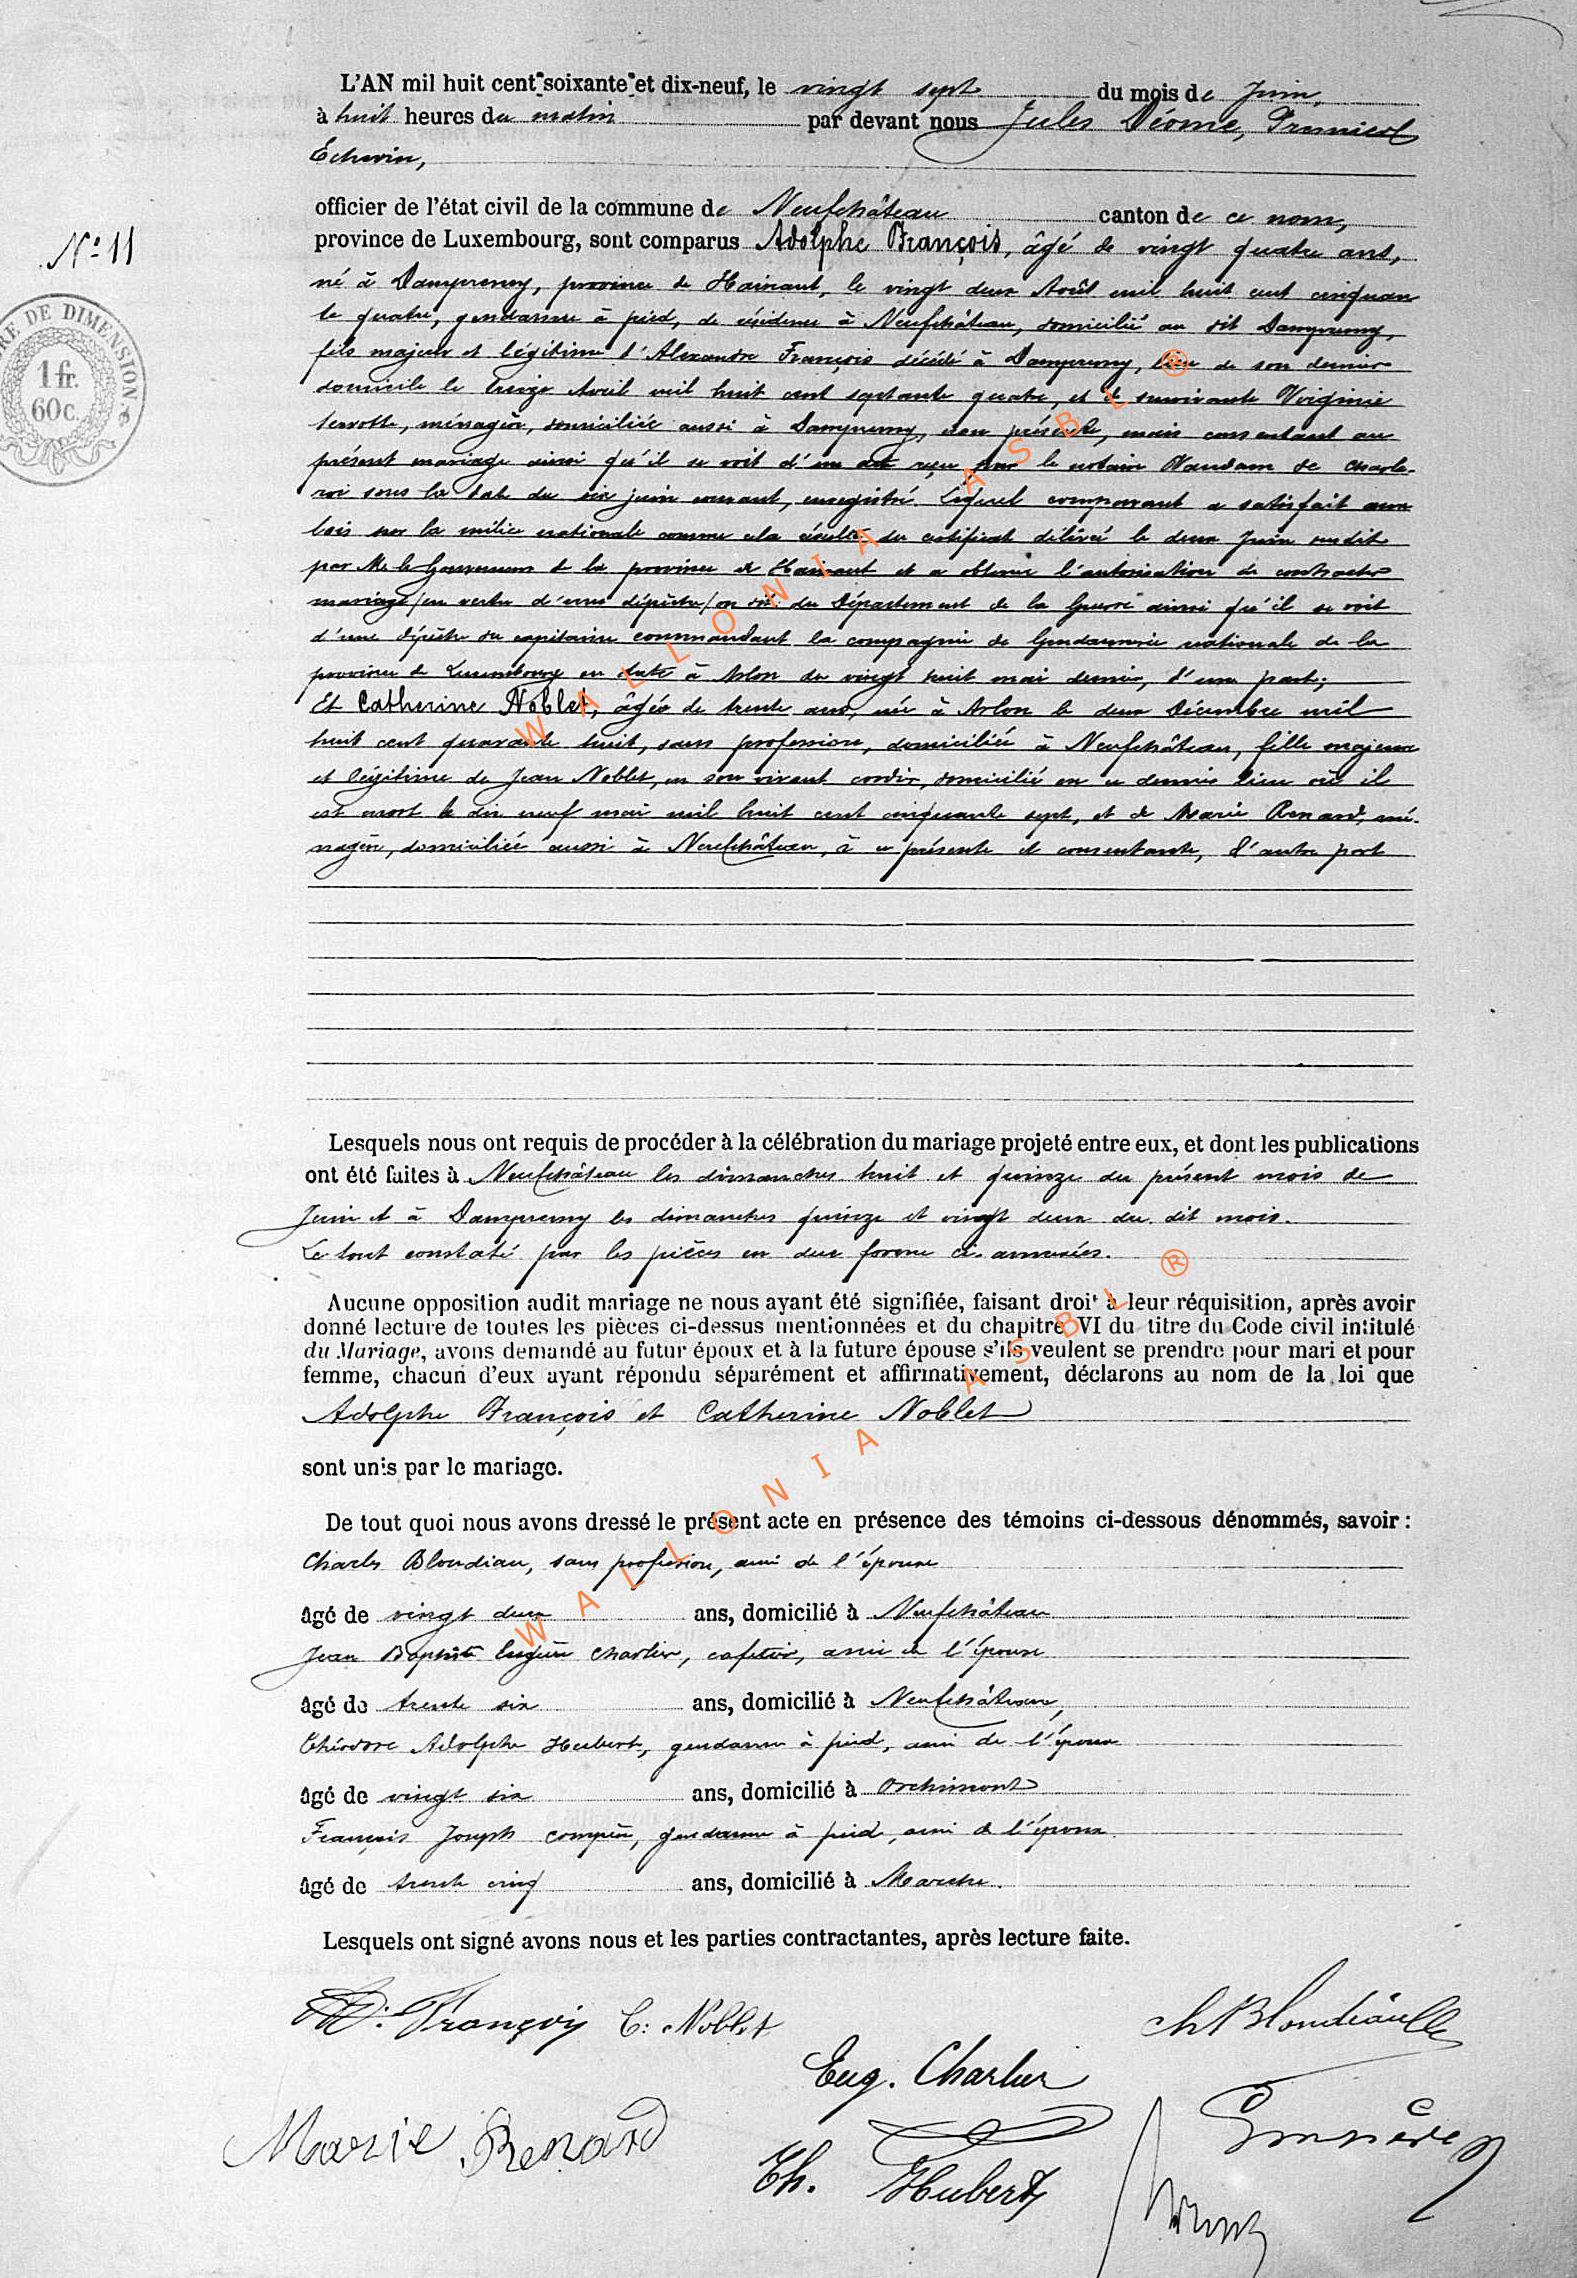 L'AN mil huit cent soixante et dix-neuf, le vingt sept du mois de Juin,
à huit heures du matin par devant nous Jules Déome, Premier
Echevin,
officier de l'état civil de la commune de Neufchâteau canton de ce nom,
province de Luxembourg, sont comparus Adolphe François, âgé de vingt quatre ans,
N° 11
né à Dampremy, province de Hainaut, le vingt deux Août mil huit cent cinquan
te quatre, gendarme à pied, de résidence à Neufchâteau, domicilié au dit Dampremy,
RE DE DIMENSION
1 fr.
60c.
fils majeur et légitime d'Alexandre François décédé à Dampremy, lieu de son dernier
domicile le treize Avril mil huit cent septante quatre, et de survivante Virginie
, ménagère, domiciliée aussi à Dampremy, non présente, mais consentant au
présent mariage ainsi qu'il se voit d'un acte reçu par le notaire Vandam de Charle-
roi sous la date du six juin courant, enregistré. Lequel comparant a satisfait aux
lois sur la milice nationale comme cela résulte du certificat délivré le deux Juin susdit
par Mr le Gouverneur de la province de Hainaut et a obtenu l'autorisation de contracter
mariage (en vertu d'une dépêche) du Département de la Guerre ainsi qu'il se voit
d'une dépêche du capitaine commandant la compagnie de Gendarmerie nationale de la
province de Luxembourg en date à Arlon du vingt huit mai dernier, d'une part;
Et Catherine Noblet, âgée de trente ans, née à Arlon le deux Décembre mil
huit cent quarante huit, sans profession, domiciliée à Neufchâteau, fille majeure
et légitime de Jean Noblet, en son vivant cordier, domicilié en ce dernier lieu où il
est mort le dix neuf mai mil huit cent cinquante sept, et de Marie Renard, mé-
nagère, domiciliée aussi à Neufchâteau, à ce présente et consentante, d'autre part
Lesquels nous ont requis de procéder à la célébration du mariage projeté entre eux, et dont les publications
ont été faites à Neufchâteau les dimanches huit et quinze du présent mois de
Juin et à Dampremy les dimanches quinze et vingt deux du dit mois.
Le tout constaté par les pièces en due forme ci-annexées.
Aucune opposition audit mariage ne nous ayant été signifiée, faisant droit à leur réquisition, après avoir
donné lecture de toutes les pièces ci-dessus mentionnées et du chapitre VI du titre du Code civil intitulé
du Mariage, avons demandé au futur époux et à la future épouse s'ils veulent se prendre pour mari et pour
femme, chacun d'eux ayant répondu séparément et affirmativement, déclarons au nom de la loi que
Adolphe François et Catherine Noblet
sont unis par le mariage.
De tout quoi nous avons dressé le présent acte en présence des témoins ci-dessous dénommés, savoir :
Charles Blondiau, sans profession, ami de l'épouse
âgé de vingt deux ans, domicilié à Neufchâteau
Jean Baptiste Eugène Charlier, cafetier, ami de l'épouse
âgé de trente six ans, domicilié à Neufchâteau,
Théodore Adolphe Hubert, gendarme à pied, ami de l'époux
âgé de vingt six ans, domicilié à Orchimont
François Joseph Compère, gendarme à pied, ami de l'époux
âgé de trente cinq ans, domicilié à Marche.
Lesquels ont signé avons nous et les parties contractantes, après lecture faite.
Ad: François C: Noblet
Eug. Charlier
Marie Renard
Th. Hubert
WALLONIA ASBL ®
WALLONIA ASBL ®